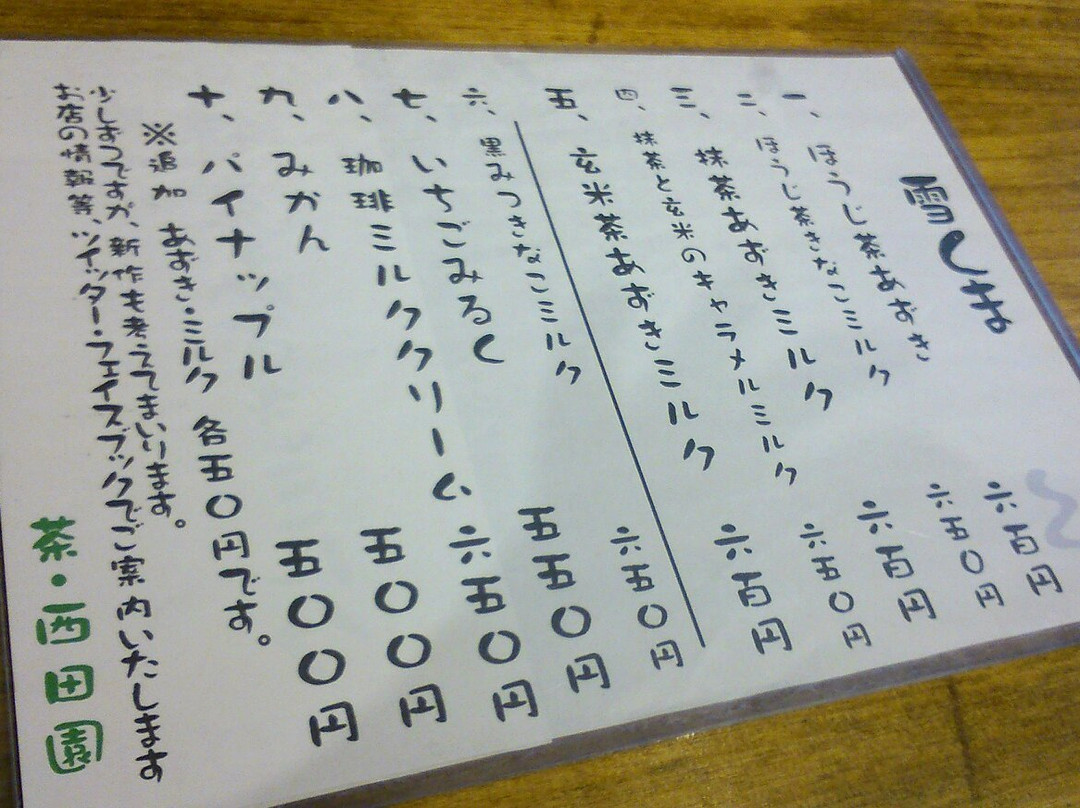 雪くま
一、ほうじ茶あずき 六百円
二、ほうじ茶きなこミルク 六五〇円
三、抹茶あずきミルク 六百円
四、抹茶と玄米のキャラメルミルク 六五〇円
五、玄米茶あずきミルク 六百円
六、黒みつきなこミルク 六五〇円
七、いちごみるく 五五〇円
八、珈琲ミルククリーム 六五〇円
九、みかん 五〇〇円
十、パイナップル 五〇〇円
※追加 あずき・ミルク 各五〇円です。
少しずつですが、新作も考えてまいります。
お店の情報等、ツイッター・フェイスブックでご案内いたします
茶・西田園